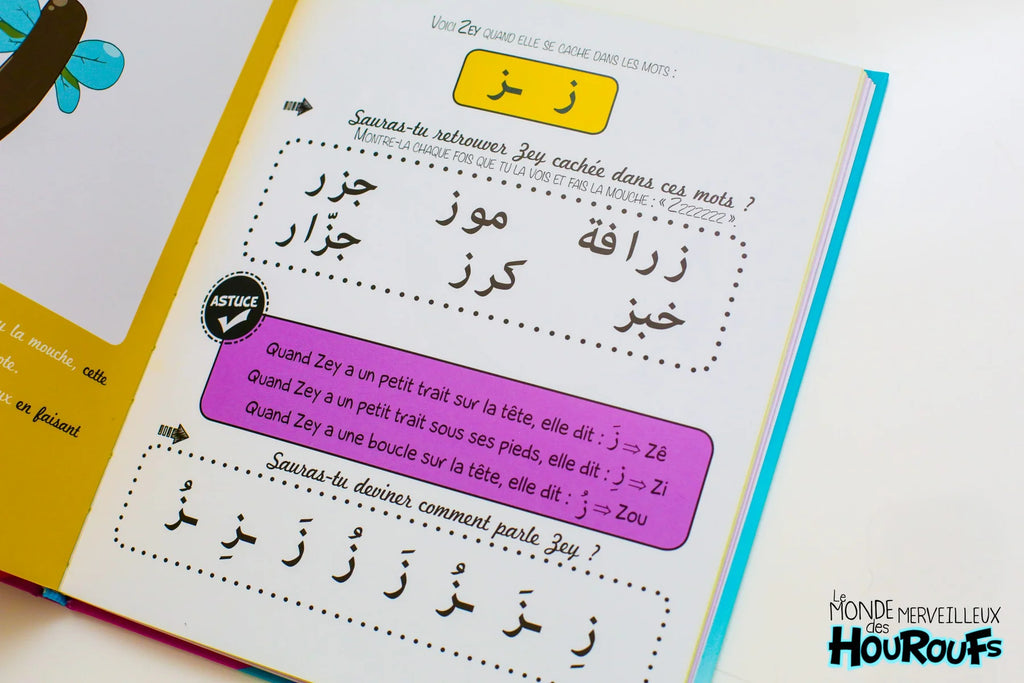 Voici Zey quand elle se cache dans les mots :
ز ـز
Sauras-tu retrouver Zey cachée dans ces mots ?
Montre-la chaque fois que tu la vois et fais la mouche : « Zzzzzzz ».
زرافة موز جزر
خبز كرز جزّار
ASTUCE
Quand Zey a un petit trait sur la tête, elle dit : زَ ⇒ Zê
Quand Zey a un petit trait sous ses pieds, elle dit : زِ ⇒ Zi
Quand Zey a une boucle sur la tête, elle dit : زُ ⇒ Zou
Sauras-tu deviner comment parle Zey ?
زِ ـزَ ـزُ زَ زُ زَ ـزِ ـزُ
la mouche, cette
en faisant
Le MONDE MERVEILLEUX
des
HOUROUFs